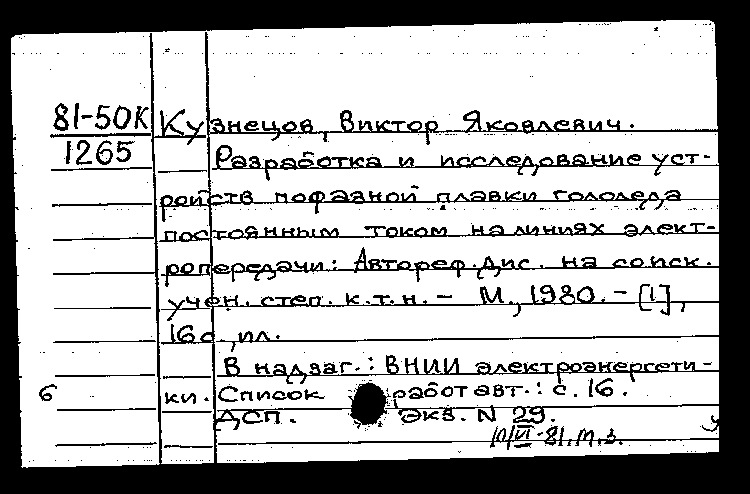 81-50К Кузнецов, Виктор Яковлевич.
1265 Разработка и исследование уст-
ройств пофазной плавки гололеда
постоянным током на линиях элект-
ропередачи: Автореф. дис. на соиск.
учен. степ. к.т.н. - М., 1980. - [1],
16 с., ил.
В надзаг.: ВНИИ электроэнергети-
6 ки. Список работ авт.: с. 16.
ДСП. Экз. N 29.
VI-81. т.з.